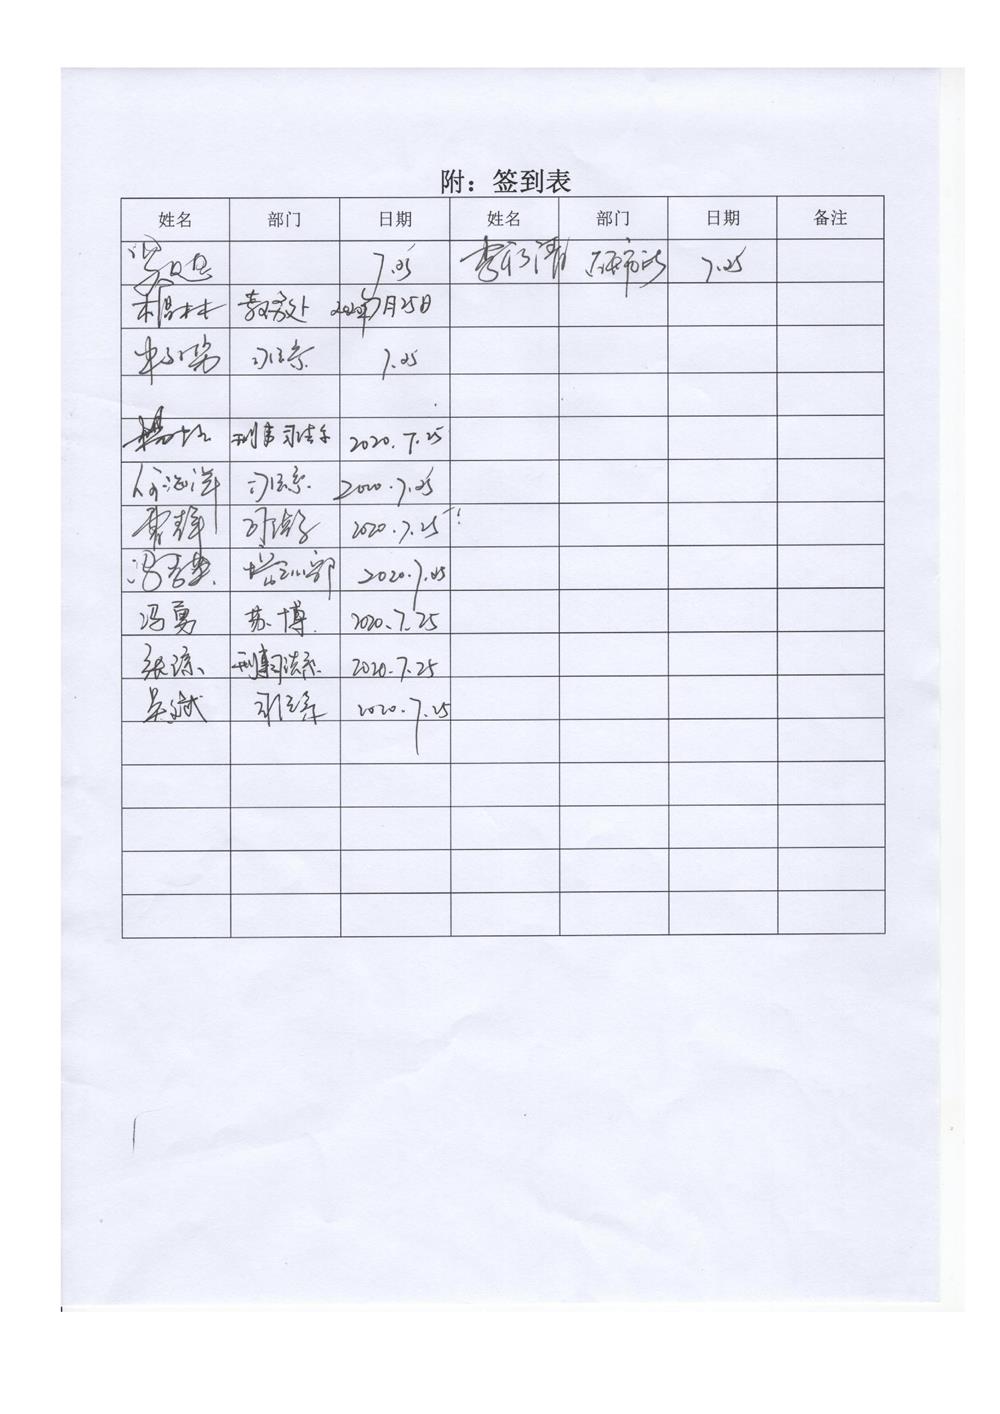 附：签到表
姓名 部门 日期 姓名 部门 日期 备注
7.25 7.25
杨林 教务处 2020年7月25日
司法系 7.25
杨 刑事司法系 2020.7.25
司法系 2020.7.25
曹 司法系 2020.7.25
冯 培训部 2020.7.25
冯勇 苏博 2020.7.25
张琼 刑事司法系 2020.7.25
吴斌 司法系 2020.7.25